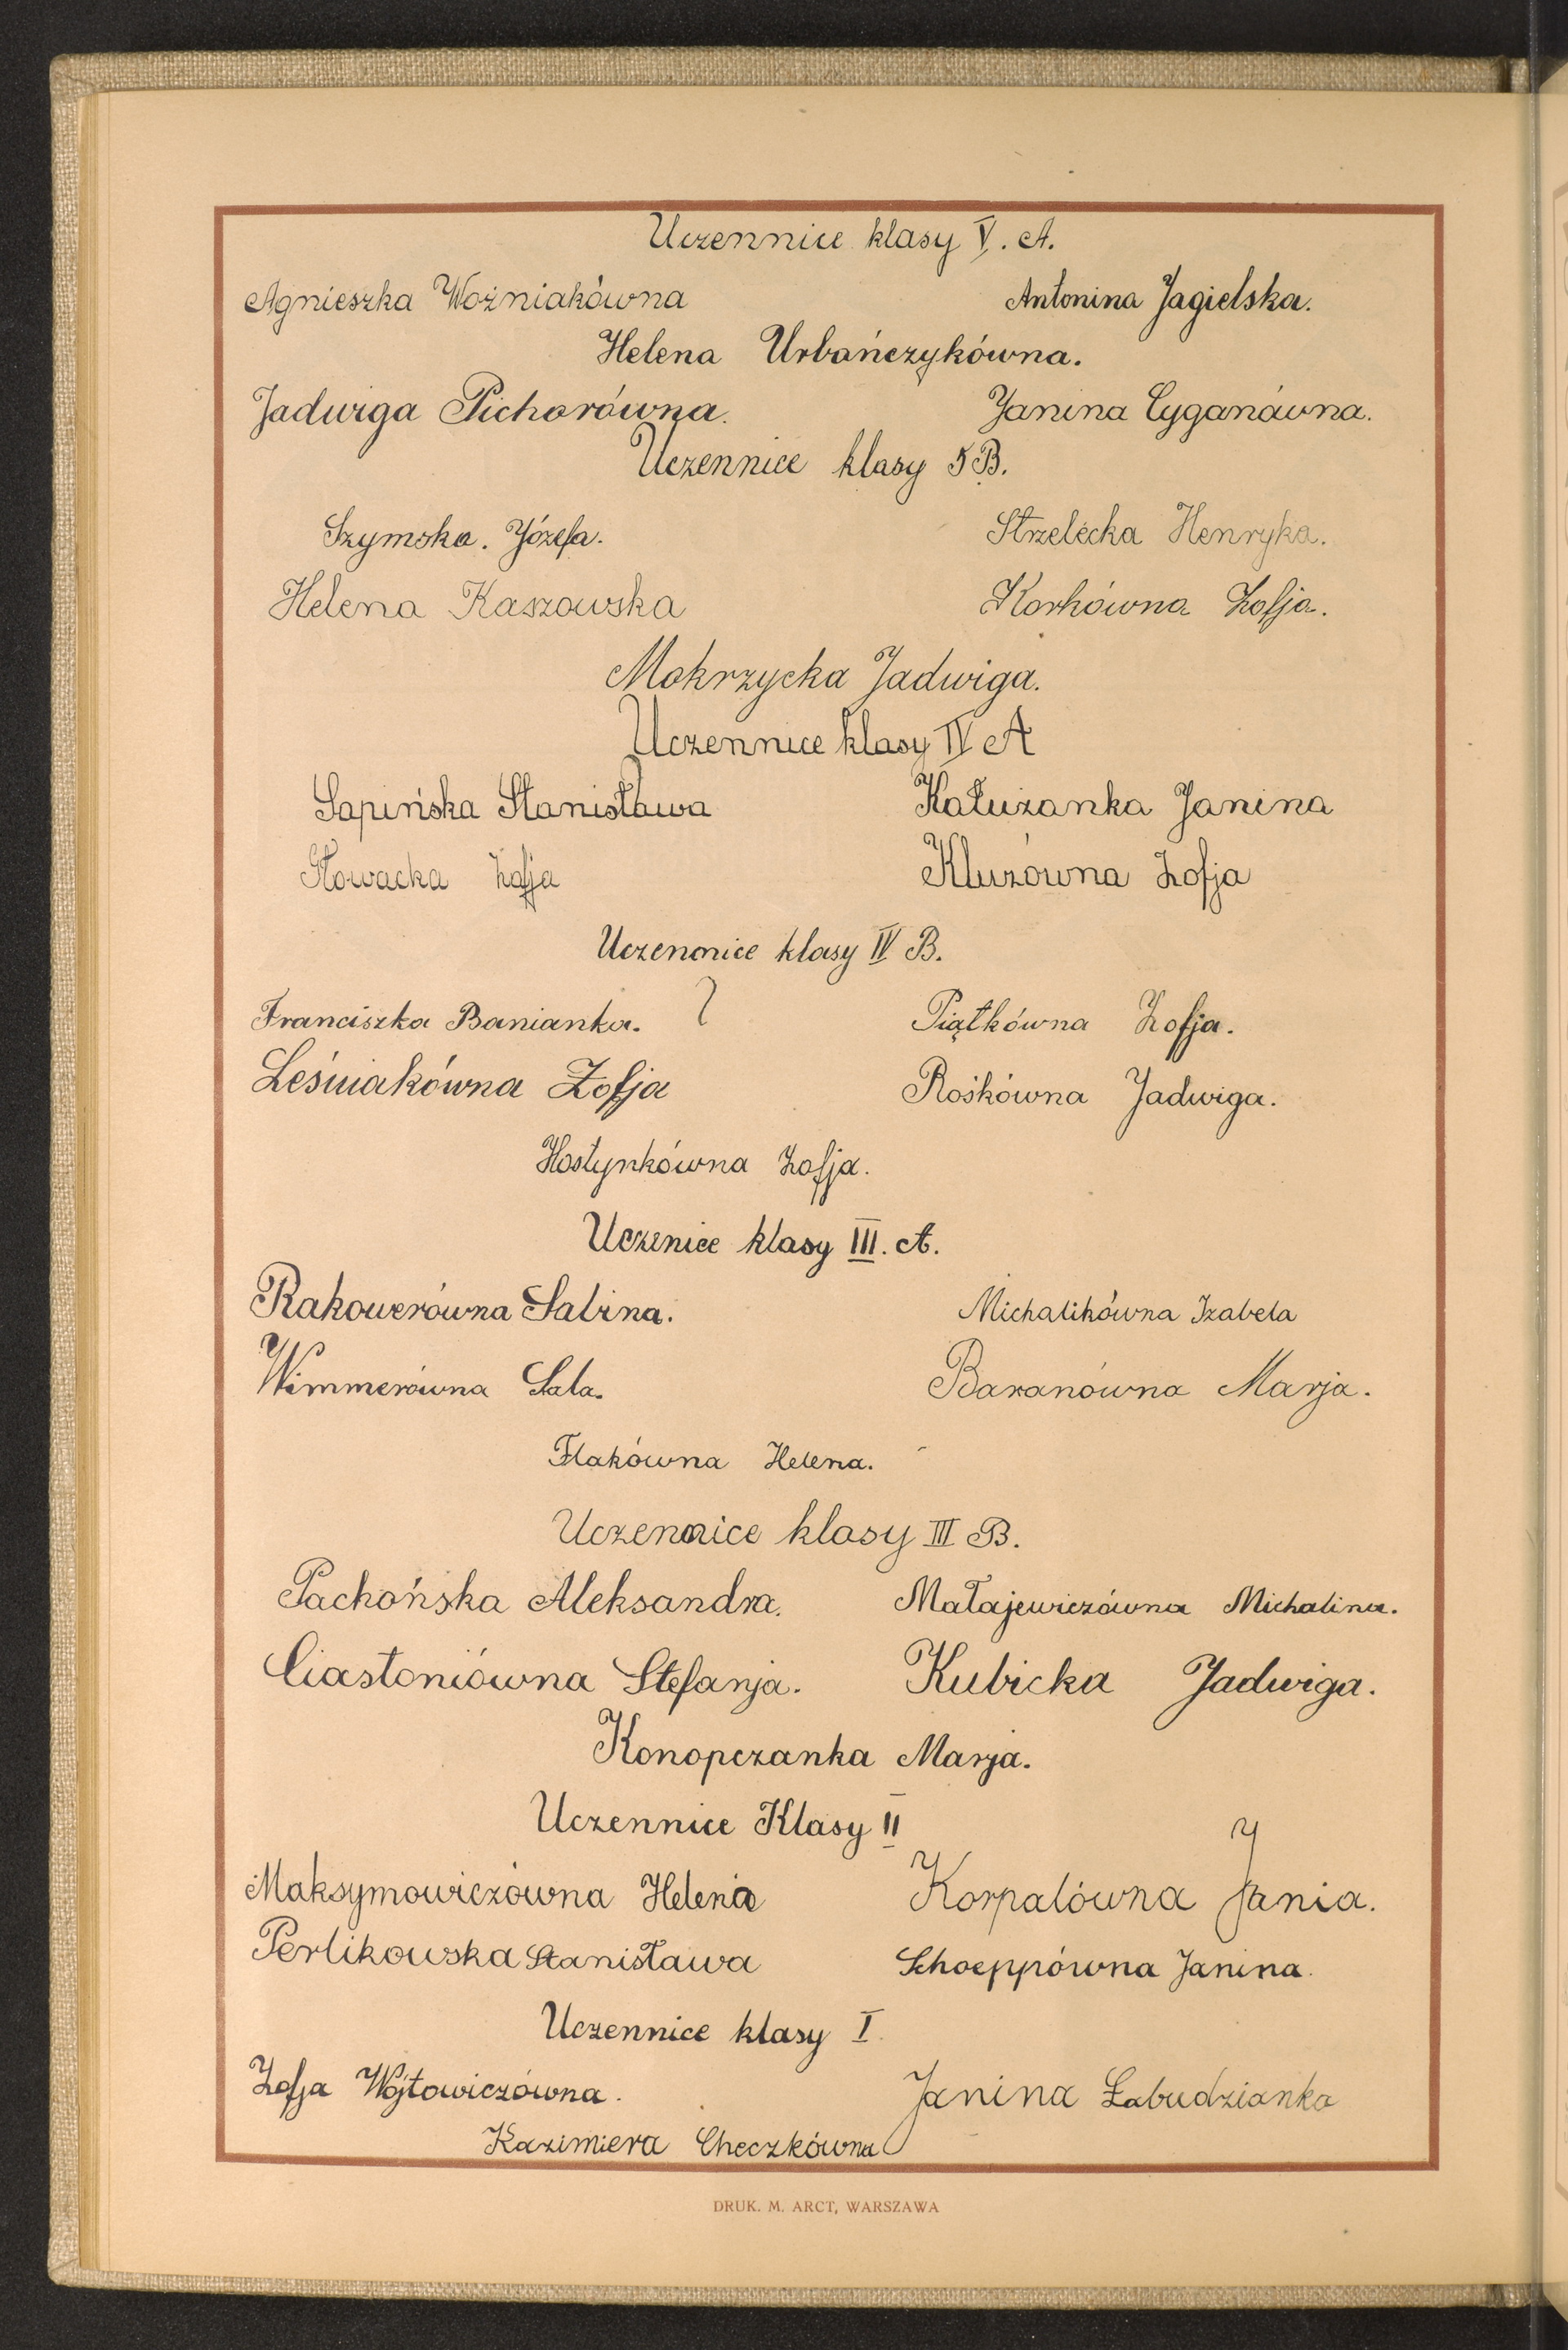 Uczennice klasy V. A.
Agnieszka Woźniakówna Antonina Jagielska.
Helena Urbańczykówna.
Jadwiga Pichorówna. Janina Cyganówna.
Uczennice klasy 5 B.
Szymska. Józefa. Strzelecka Henryka.
Helena Kaszowska Korkówna Zofja.
Mokrzycka Jadwiga.
Uczennice klasy IV A
Sapińska Stanisława Kałużanka Janina
Słowacka Zofja Kluzówna Zofja
Uczennice klasy IV B.
Franciszka Banianka. Piątkówna Zofja.
Leśniakówna Zofja Rośkówna Jadwiga.
Hostynkówna Zofja.
Uczenice klasy III. A.
Rakowerówna Sabina. Michalikówna Izabela
Wimmerówna Sala. Baranówna Marja.
Flakówna Helena.
Uczennice klasy III B.
Pachońska Aleksandra. Małajewiczówna Michalina.
Ciastoniówna Stefanja. Kubicka Jadwiga.
Konopczanka Marja.
Uczennice Klasy II
Maksymowiczówna Helena Korpalówna Jania.
Perlikowska Stanisława Schoeppówna Janina.
Uczennice klasy I
Zofja Wójtowiczówna. Janina Łabudzianka
Kazimiera Checzkówna
DRUK. M. ARCT, WARSZAWA